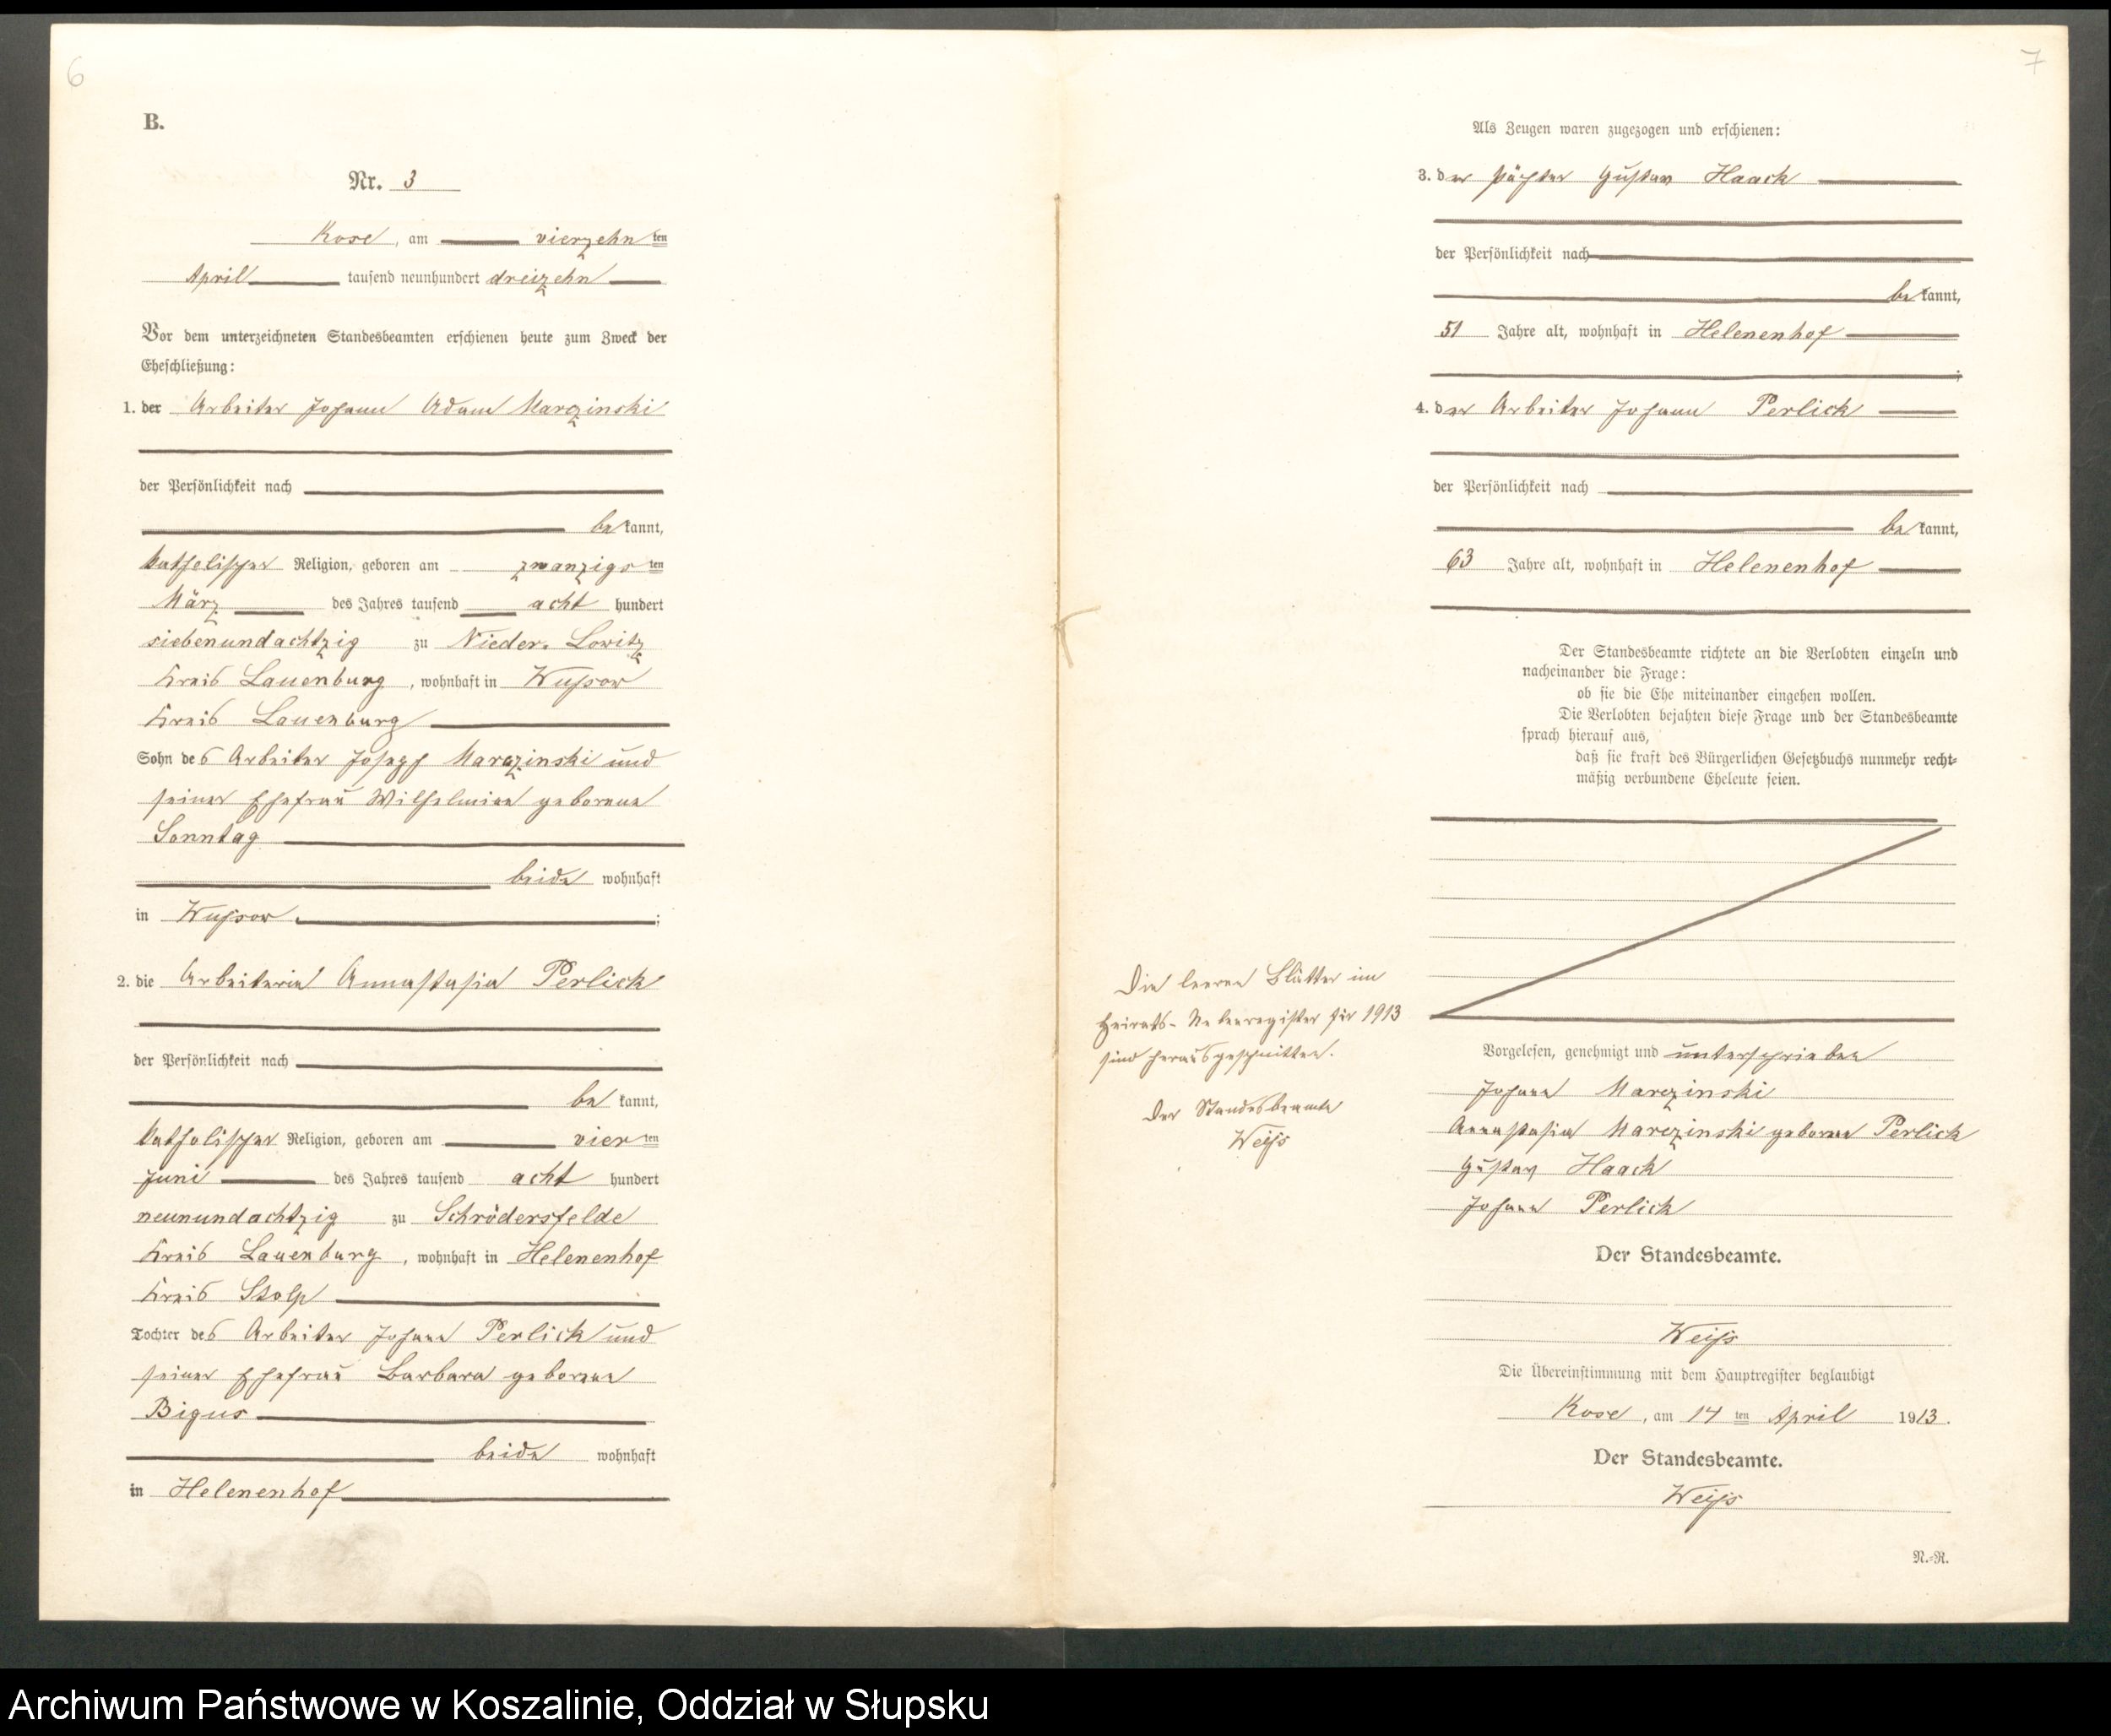 6
B.
Nr. 3
Kose, am vierzehn ten
April tausend neunhundert dreizehn
Vor dem unterzeichneten Standesbeamten erschienen heute zum Zweck der
Eheschließung:
1. der Arbeiter Johann Adam Marczinski
der Persönlichkeit nach
be kannt,
katholischer Religion, geboren am zwanzigs ten
März des Jahres tausend acht hundert
siebenundachtzig zu Nieder. Lowitz
Kreis Lauenburg, wohnhaft in Wussow
Kreis Lauenburg
Sohn des Arbeiter Joseph Marczinski und
seiner Ehefrau Wilhelmine geborene
Sonntag
beide wohnhaft
in Wussow. ;
2. die Arbeiterin Annastasia Perlick
der Persönlichkeit nach
be kannt,
katholischer Religion, geboren am vier ten
Juni des Jahres tausend acht hundert
neunundachtzig zu Schrödersfelde
Kreis Lauenburg, wohnhaft in Helenenhof
Kreis Stolp
Tochter des Arbeiter Johann Perlick und
seiner Ehefrau Barbara geborene
Bigus
beide wohnhaft
in Helenenhof
7
Als Zeugen waren zugezogen und erschienen:
3. der Pächter Gustav Haack
der Persönlichkeit nach
be kannt,
51 Jahre alt, wohnhaft in Helenenhof
;
4. der Arbeiter Johann Perlick
der Persönlichkeit nach
be kannt,
63 Jahre alt, wohnhaft in Helenenhof
Der Standesbeamte richtete an die Verlobten einzeln und
nacheinander die Frage:
ob sie die Ehe miteinander eingehen wollen.
Die Verlobten bejahten diese Frage und der Standesbeamte
sprach hierauf aus,
daß sie kraft des Bürgerlichen Gesetzbuchs nunmehr recht-
mäßig verbundene Eheleute seien.
Die leeren Blätter im
Heirats-Nebenregister für 1913
sind herausgeschnitten.
Der Standesbeamte
Weiss
Vorgelesen, genehmigt und unterschrieben
Johann Marczinski
Annastasia Marczinski geborene Perlick
Gustav Haack
Johann Perlick
Der Standesbeamte.
Weiss
Die Übereinstimmung mit dem Hauptregister beglaubigt
Kose, am 14 ten April 1913.
Der Standesbeamte.
Weiss
N.-R.
Archiwum Państwowe w Koszalinie, Oddział w Słupsku